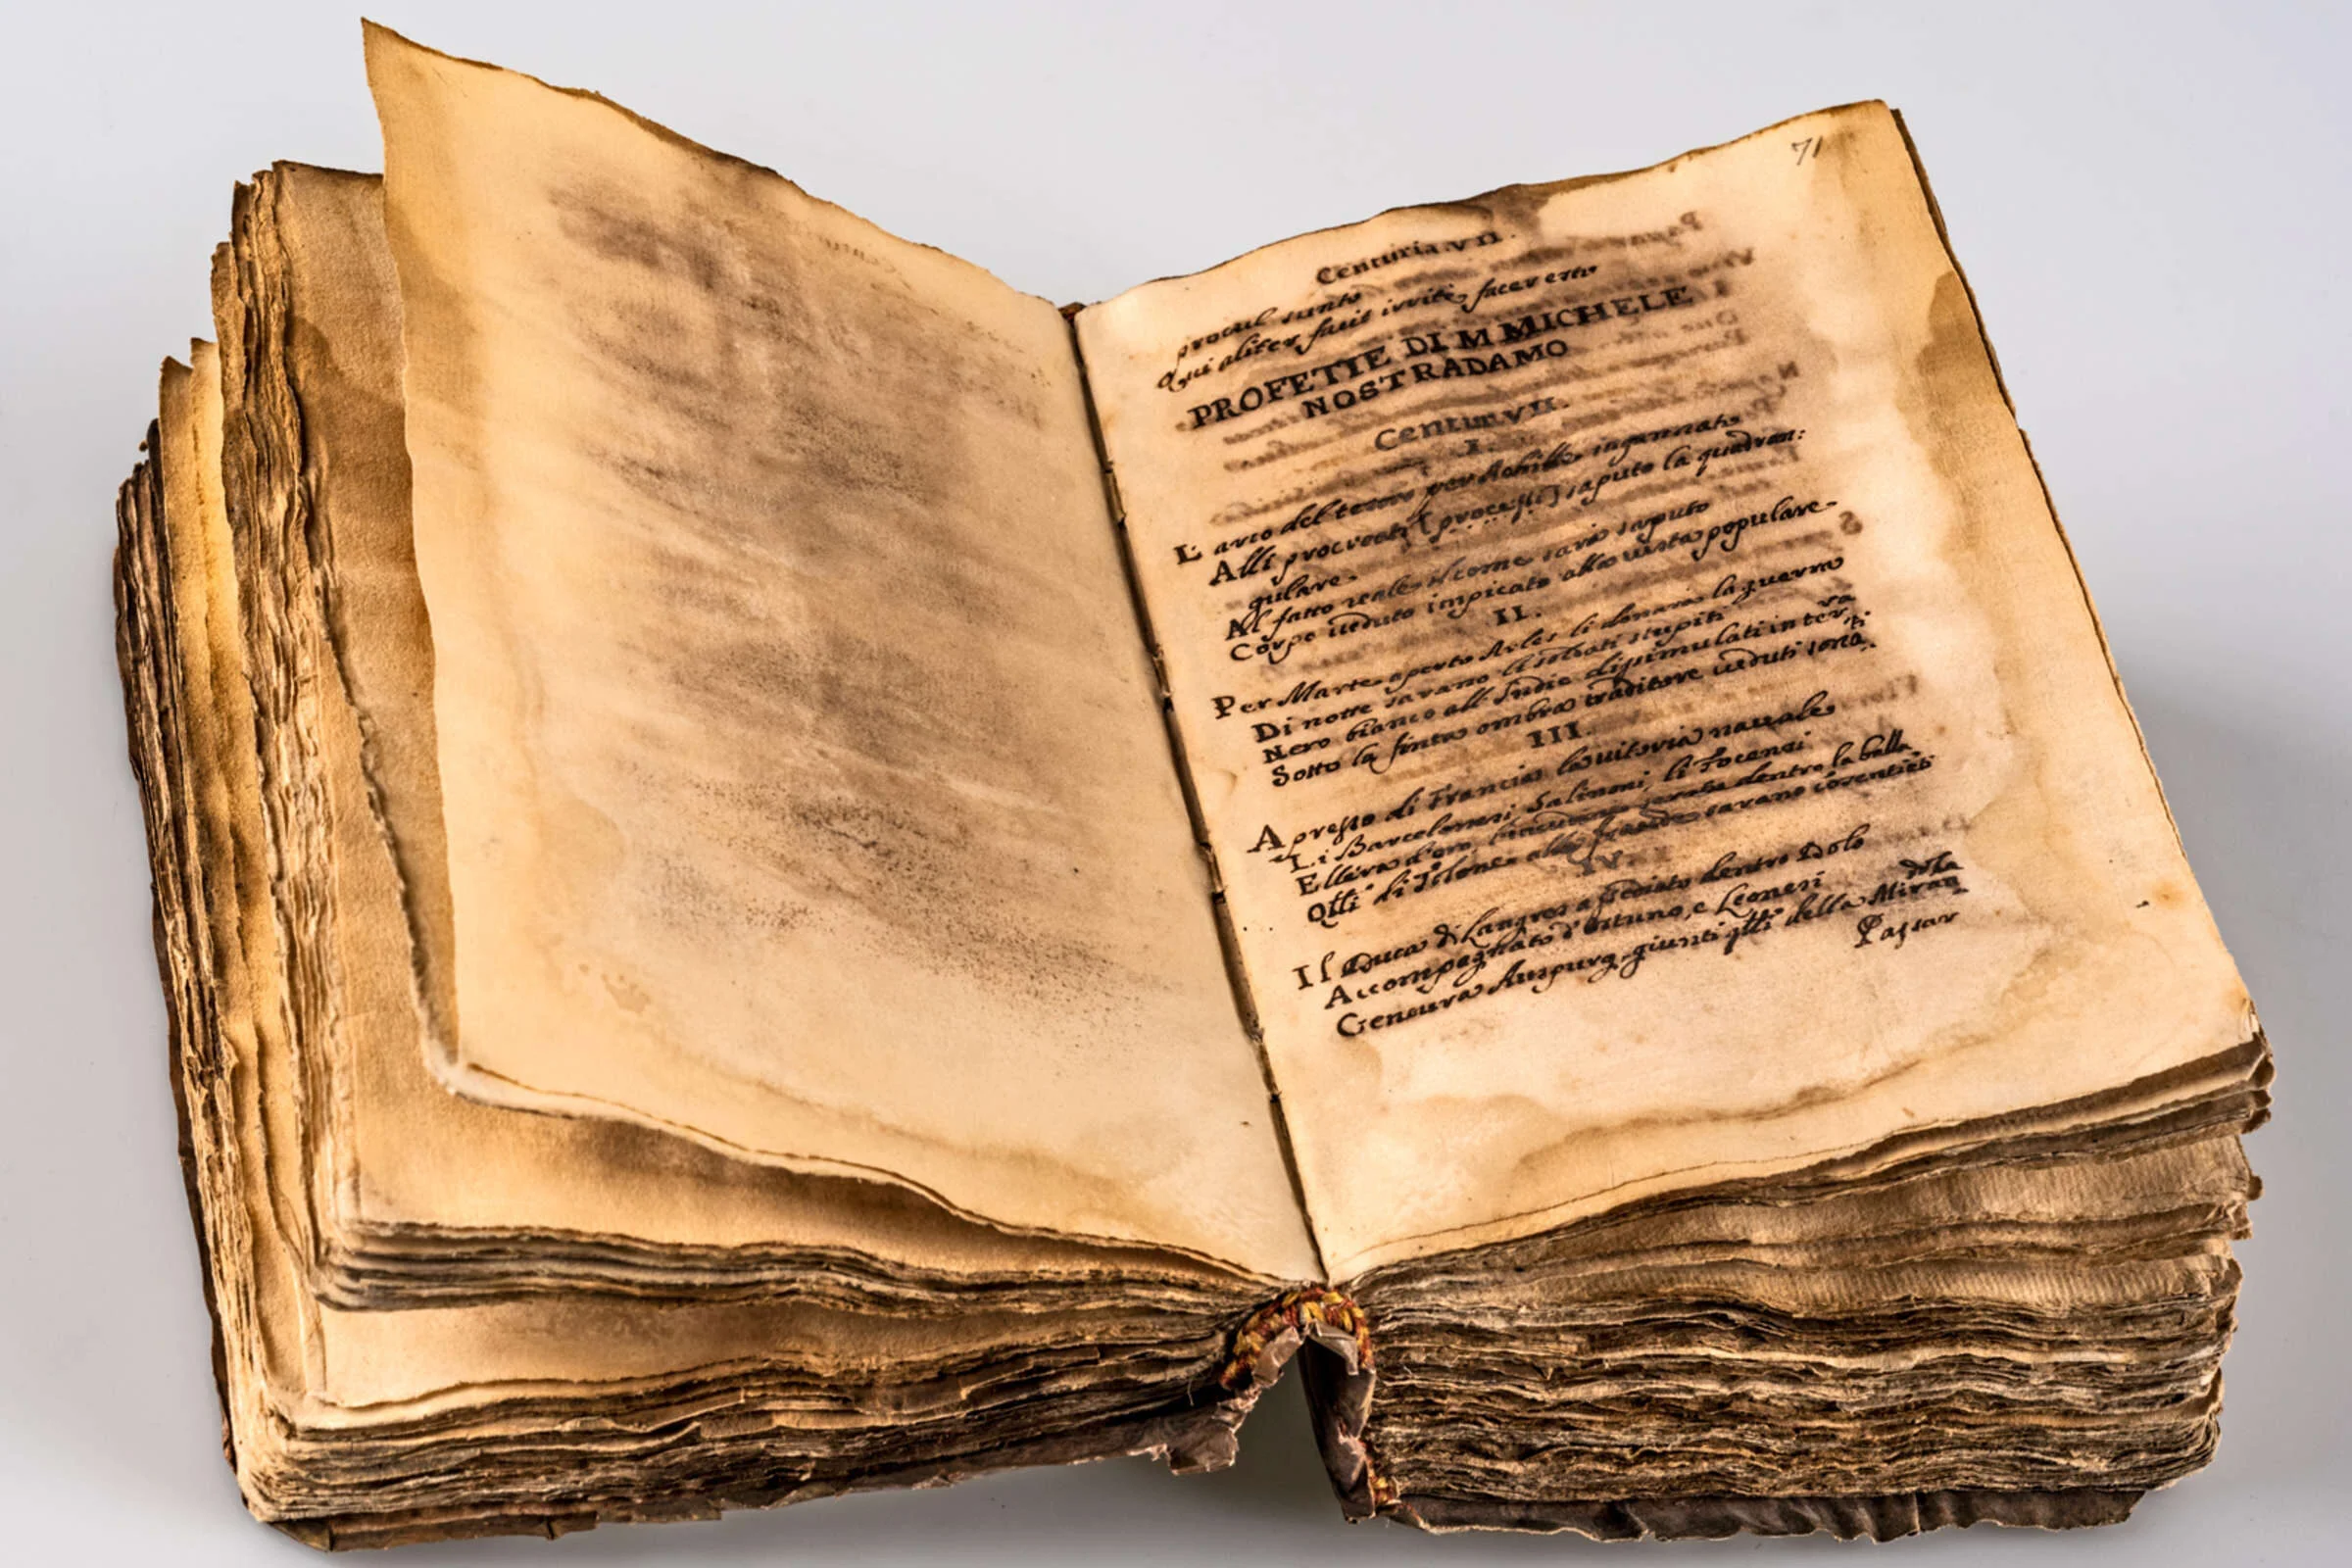 71
Centuria. VII.
procul sunto
Qui aliter facit irrite, sacer esto
PROFETIE DI M MICHELE
NOSTRADAMO
Centur. VII.
I.
L'arco del tesoro per Achille ingannato
Alli procreati [processi] saputo la quadran:
gulare.
Al fatto reale il come sarà saputo
Corpo ueduto impicato alla uista populare.
II.
Per Marte aperto Arles li donarà la guerra
Di notte sarano li soldati stupiti
Nero bianco all' Indie disimulati in terra
Sotto la finta ombra traditore ueduti
III.
Apresso di Francia la uitoria nauale
Li Barceloneri Salinoni, li Focensi
Ellira d'oro, serata dentro la balla
Qlli di Tolone alla fraude sarano cosentieti
IV.
Il Duca di Langres assediato dentro Dolo
Accompagnato d'Ottuno, e Leoneri
Geneura Auspurg, giunti qlli della Miran
dola
Passar